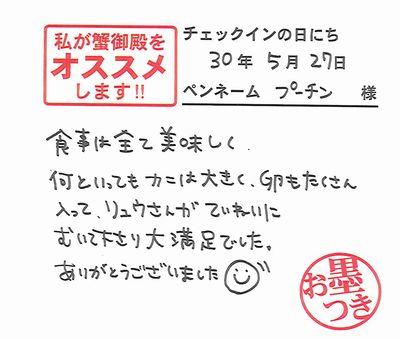 私が蟹御殿を
オススメ
します!!
チェックインの日にち
30年 5月 27日
ペンネーム プーチン 様
食事は全て美味しく
何といってもカニは大きく、卵もたくさん
入って、リュウさんがていねいに
むいて下さり大満足でした。
ありがとうございました
お墨
つき